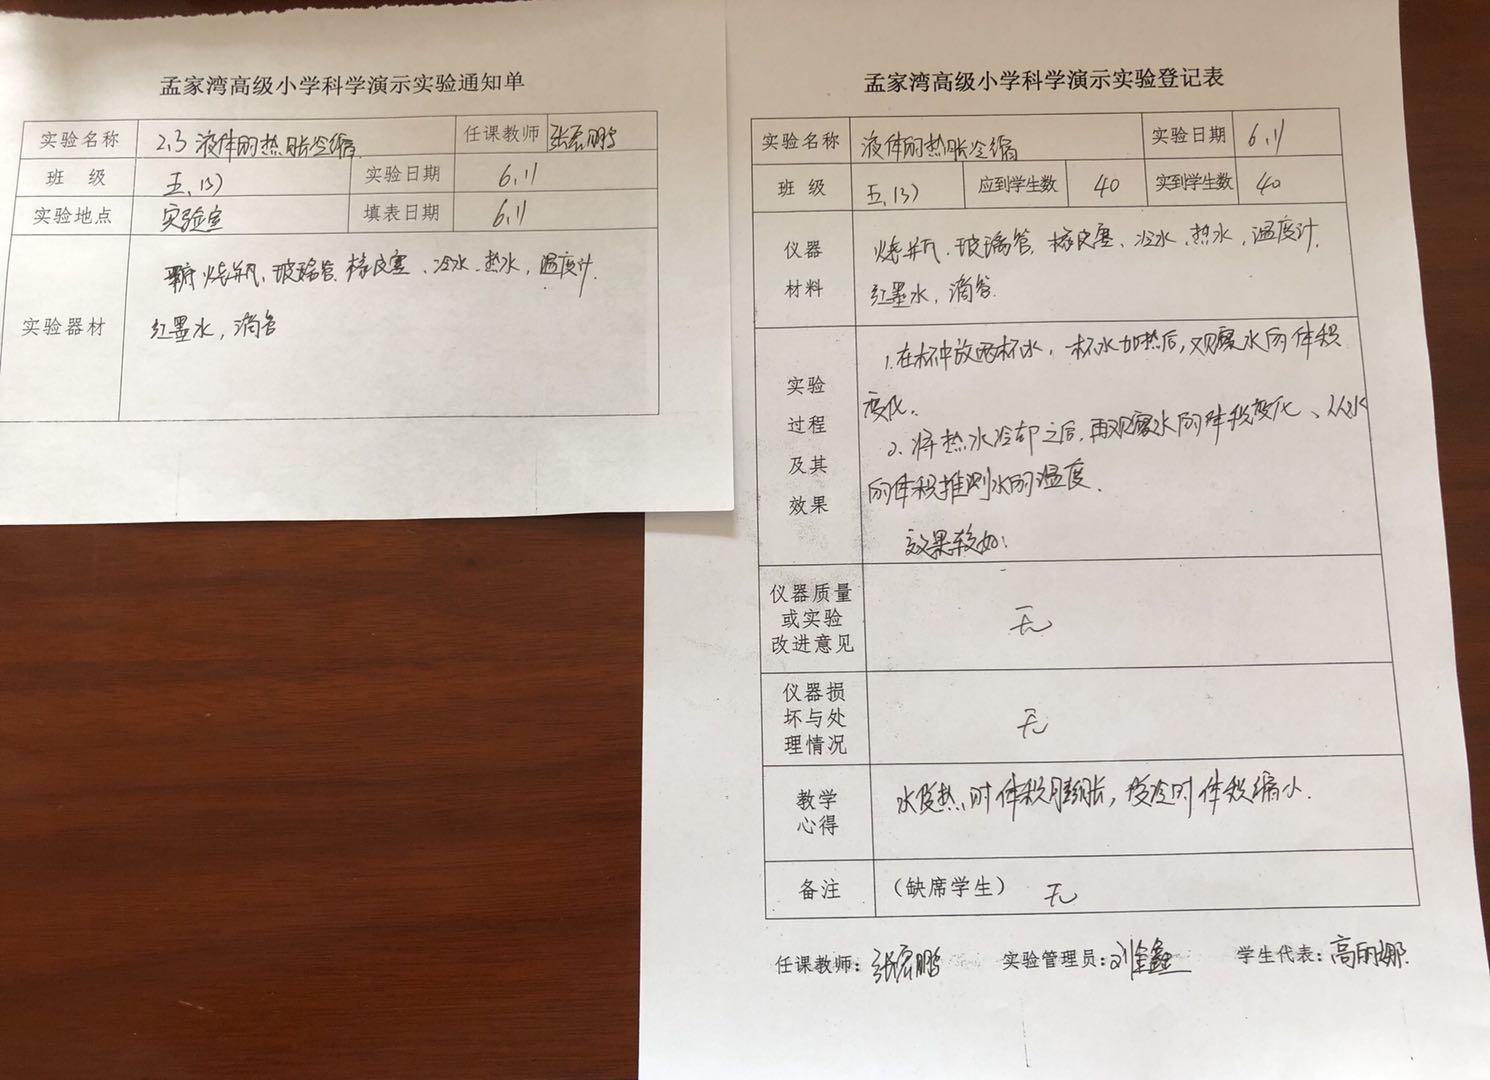 孟家湾高级小学科学演示实验通知单
实验名称 2.3 液体的热胀冷缩 任课教师 张宏鹏
班 级 五.(3) 实验日期 6.11
实验地点 实验室 填表日期 6.11
实验器材 烧瓶、玻璃管、橡皮塞、冷水、热水，温度计.
红墨水，滴管
孟家湾高级小学科学演示实验登记表
实验名称 液体的热胀冷缩 实验日期 6.11
班 级 五.(3) 应到学生数 40 实到学生数 40
仪器
材料
烧瓶、玻璃管、橡皮塞、冷水、热水，温度计.
红墨水，滴管.
实验
过程
及其
效果
1.在杯中放两杯水，一杯水加热后，观察水的体积
变化.
2.将热水冷却之后，再观察水的体积变化、从水
的体积推测水的温度.
效果较好.
仪器质量
或实验
改进意见
无
仪器损
坏与处
理情况
无
教学
心得
水受热时体积膨胀，受冷时体积缩小.
备注 （缺席学生） 无
任课教师：张宏鹏 实验管理员：刘鑫 学生代表：高丽娜